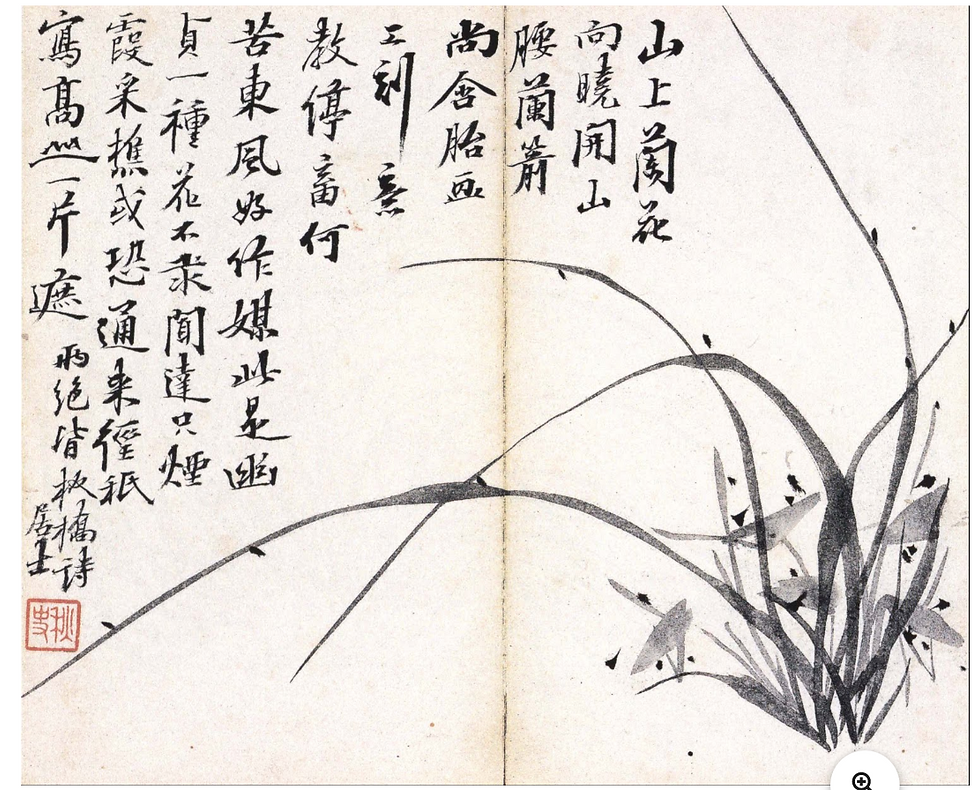 山上蘭花
向曉開山
腰蘭箭
尚含胎画
工刻意
教停蓄何
苦東風好作媒此是幽
貞一種花不求聞達只煙
霞采樵或恐通来徑秪
寫高山一片遮
兩絕皆板橋詩
居士
秋史